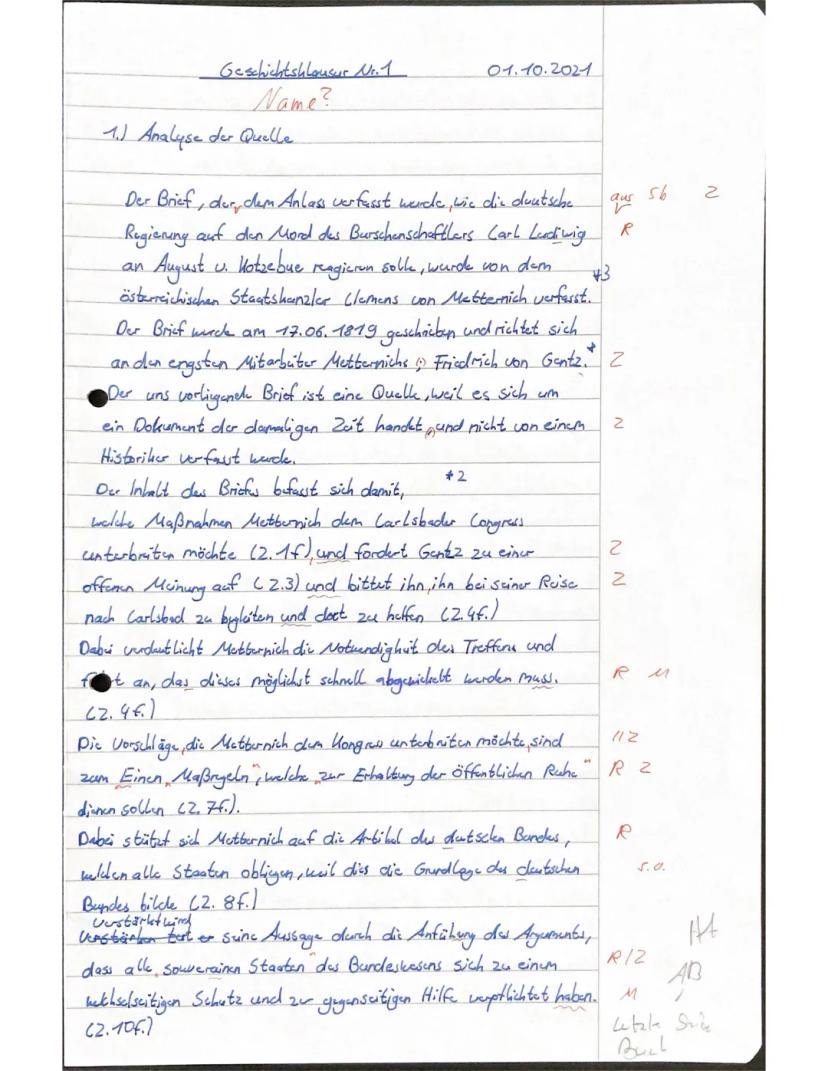 Geschichtsklausur Nr.1 01.10.2021
Name?
1.) Analyse der Quelle
Der Brief, der dem Anlass verfasst wurde, wie die deutsche aus Sb Z
Regierung auf den Mord des Burschenschaftlers Carl Ludwig R
an August v. Kotzebue reagieren solle, wurde von dem *3
österreichischen Staatskanzler Clemens von Metternich verfasst.
Der Brief wurde am 17.06.1819 geschrieben und richtet sich
an den engsten Mitarbeiter Metternichs, Friedrich von Gentz.* Z
Der uns vorliegende Brief ist eine Quelle, weil es sich um
ein Dokument der damaligen Zeit handet, und nicht von einem Z
Historiker verfasst wurde.
Der Inhalt des Briefes befasst sich damit, *2
welche Maßnahmen Metternich dem Carlsbader Congress
unterbreiten möchte (Z.1f), und fordert Gentz zu einer Z
offenen Meinung auf (Z.3) und bittet ihn, ihn bei seiner Reise Z
nach Carlsbad zu begleiten und dort zu helfen (Z.4f.)
Dabei verdeutlicht Metternich die Notwendigkeit des Treffens und
an, das dieses möglichst schnell abgewickelt werden muss. R M
(Z.4f.)
Die Vorschläge, die Metternich dem Kongress unterbreiten möchte, sind 11Z
zum Einen „Maßregeln", welche „zur Erhaltung der öffentlichen Ruhe" R Z
dienen sollen (Z.7f.).
Dabei stützt sich Metternich auf die Artikel des deutschen Bundes, R
welchen alle Staaten obliegen, weil dies die Grundlage des deutschen s.o.
Bundes bilde (Z.8f.)
Verstärkt wird
seine Aussage durch die Anführung des Arguments, HA
dass alle „souverainen Staaten" des Bundeswesens sich zu einem R/Z AB
wechselseitigen Schutz und zur gegenseitigen Hilfe verpflichtet haben. M
(Z.10f.) Letzte Seite
Buch